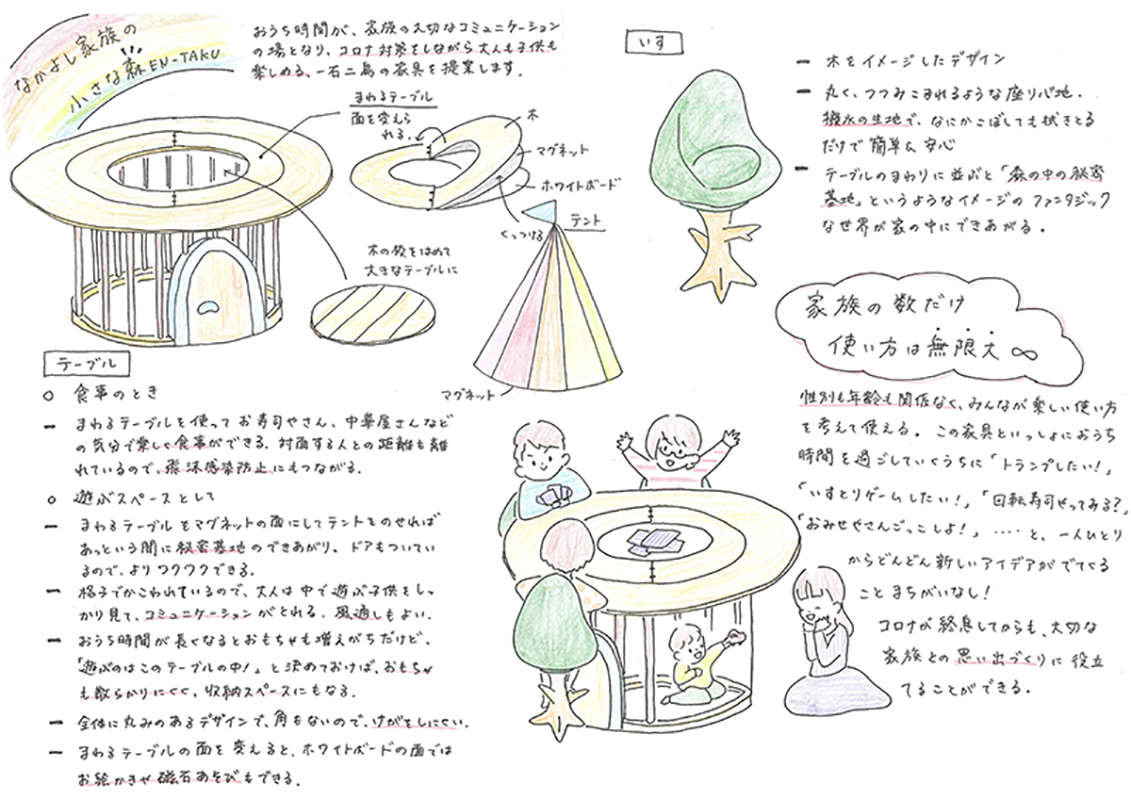 なかよし家族の
小さな森 EN-TAKU
おうち時間が、家族の大切なコミュニケーション
の場となり、コロナ対策をしながら大人も子供も
楽しめる、一石二鳥の家具を提案します。
まわるテーブル
面を変えら
れる。
木
マグネット
ホワイトボード
くっつける
テント
木の板をはめて
大きなテーブルに
マグネット
テーブル
○ 食事のとき
ー まわるテーブルを使ってお寿司やさん、中華屋さんなど
の気分で楽しく食事ができる。対面する人との距離も離
れているので、飛沫感染防止にもつながる。
○ 遊ぶスペースとして
ー まわるテーブルをマグネットの面にしてテントをのせれば
あっという間に秘密基地のできあがり、ドアもついてい
るので、よりワクワクできる。
ー 格子でかこわれているので、大人は中で遊ぶ子供をしっ
かり見て、コミュニケーションがとれる。風通しもよい。
ー おうち時間が長くなるとおもちゃも増えがちだけど、
「遊ぶのはこのテーブルの中！」と決めておけば、おもちゃ
も散らかりにくく、収納スペースにもなる。
ー 全体に丸みのあるデザインで、角もないので、けがをしにくい。
ー まわるテーブルの面を変えると、ホワイトボードの面では
お絵かきや磁石あそびもできる。
いす
ー 木をイメージしたデザイン
ー 丸く、つつみこまれるような座り心地。
撥水の生地で、なにかこぼしても拭きとる
だけで簡単&安心
ー テーブルのまわりに並ぶと「森の中の秘密
基地」というようなイメージのファンタジック
な世界が家の中にできあがる。
家族の数だけ
使い方は無限大∞
性別も年齢も関係なく、みんなが楽しい使い方
を考えて使える。この家具といっしょにおうち
時間を過ごしていくうちに「トランプしたい！」
「いすとりゲームしたい！」、「回転寿司やってみる？」
「おみせやさんごっこしよ！」 ‥‥と、一人ひとり
からどんどん新しいアイデアがでてくる
ことまちがいなし！
コロナが終息してからも、大切な
家族との思い出づくりに役立
てることができる。